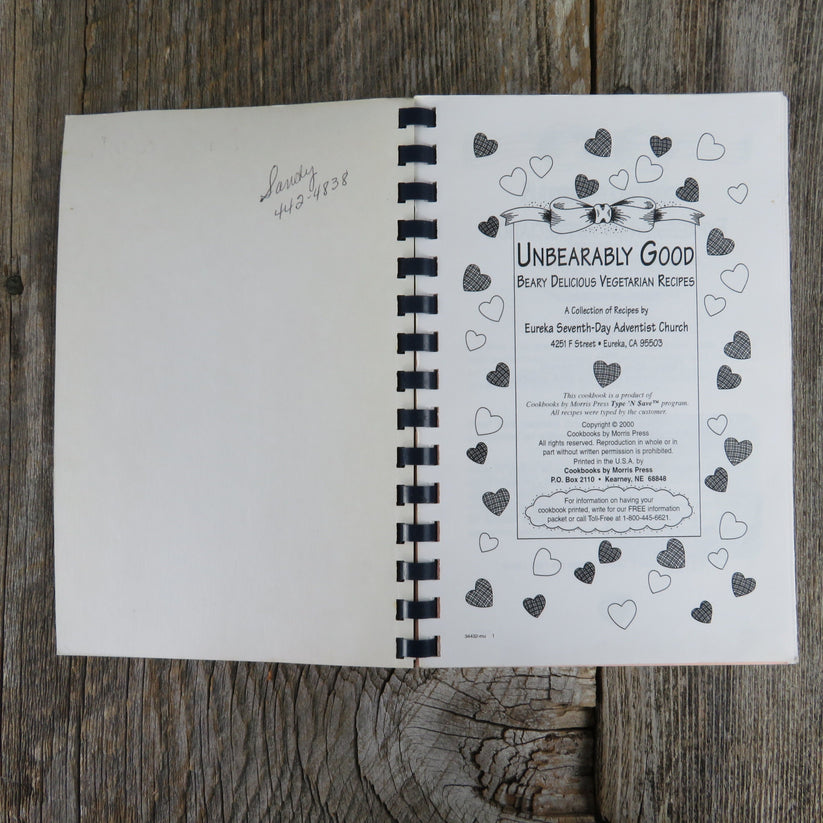 Sandy
442-4838
UNBEARABLY GOOD
BEARY DELICIOUS VEGETARIAN RECIPES
A Collection of Recipes by
Eureka Seventh-Day Adventist Church
4251 F Street • Eureka, CA 95503
This cookbook is a product of
Cookbooks by Morris Press Type 'N Save™ program.
All recipes were typed by the customer.
Copyright © 2000
Cookbooks by Morris Press
All rights reserved. Reproduction in whole or in
part without written permission is prohibited.
Printed in the U.S.A. by
Cookbooks by Morris Press
P.O. Box 2110 • Kearney, NE 68848
For information on having your
cookbook printed, write for our FREE information
packet or call Toll-Free at 1-800-445-6621.
34432-mu 1